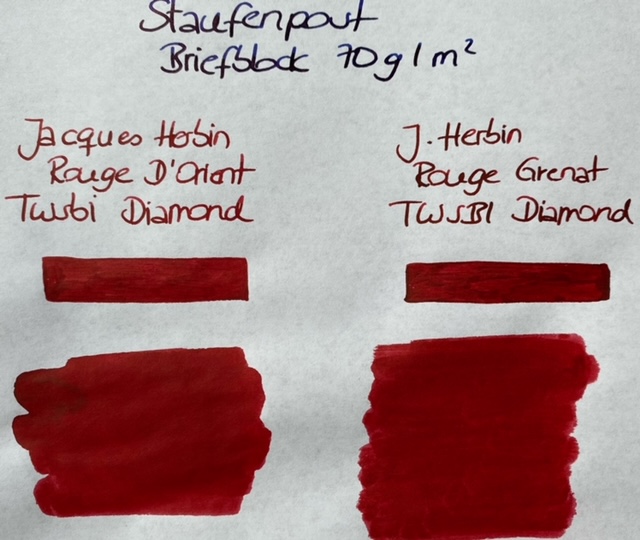 Staufenpout
Briefblock 70g/m²
Jacques Herbin
Rouge D'Orient
Twsbi Diamond
J. Herbin
Rouge Grenat
TWSBI Diamond